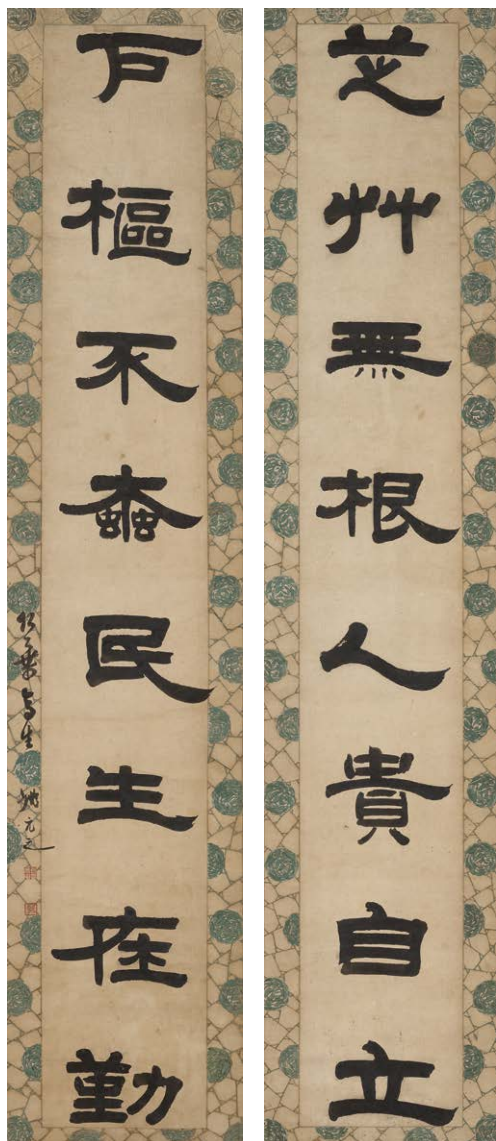 芝艸無根人貴自立
戶樞不蠹民生在勤
姚元之